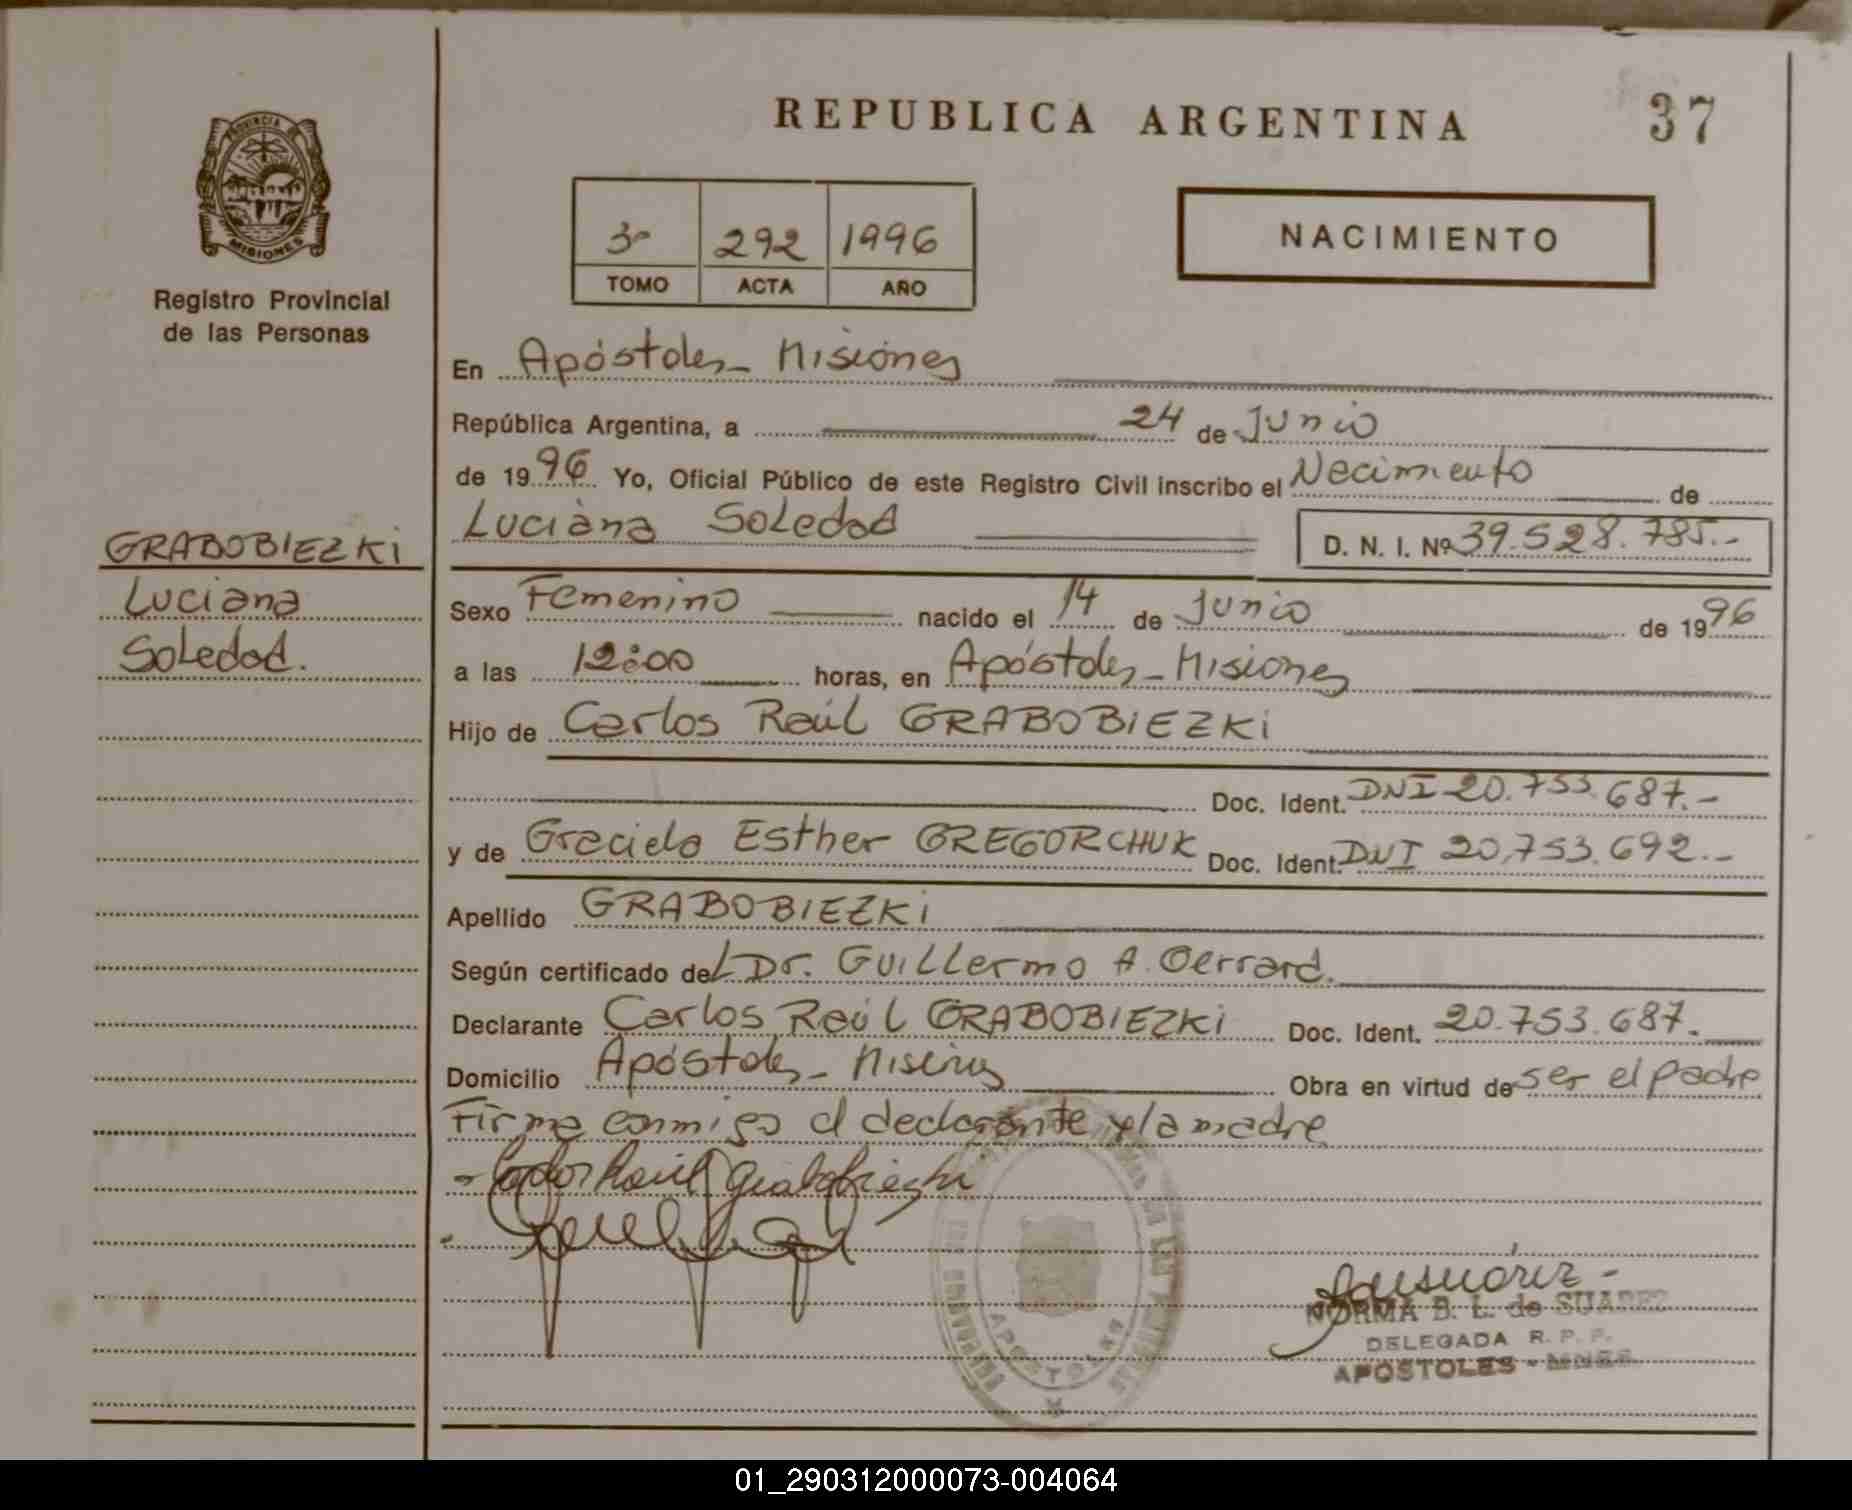 REPUBLICA ARGENTINA
37
PROVINCIA DE
MISIONES
Registro Provincial
de las Personas
3º 292 1996
TOMO ACTA AÑO
NACIMIENTO
En Apóstoles - Misiones
República Argentina, a 24 de Junio
de 1996 Yo, Oficial Público de este Registro Civil inscribo el Nacimiento de
Luciana Soledad D. N. I. Nº 39.528.785.-
GRABOBIEZKI
Luciana
Soledad.
Sexo Femenino nacido el 14 de Junio de 1996
a las 12:00 horas, en Apóstoles - Misiones
Hijo de Carlos Raúl GRABOBIEZKI
Doc. Ident. DNI 20.753.687.-
y de Graciela Esther GREGORCHUK Doc. Ident. DNI 20.753.692.-
Apellido GRABOBIEZKI
Según certificado del Dr. Guillermo A. Gerrard.
Declarante Carlos Raúl GRABOBIEZKI Doc. Ident. 20.753.687.
Domicilio Apóstoles - Misiones Obra en virtud de ser el padre
Firma conmigo el declarante y la madre
Carlos Raúl Grabobiezki
NORMA B. L. de SUAREZ
DELEGADA R. P. P.
APOSTOLES - MNES.
APOSTOLES
01_290312000073-004064